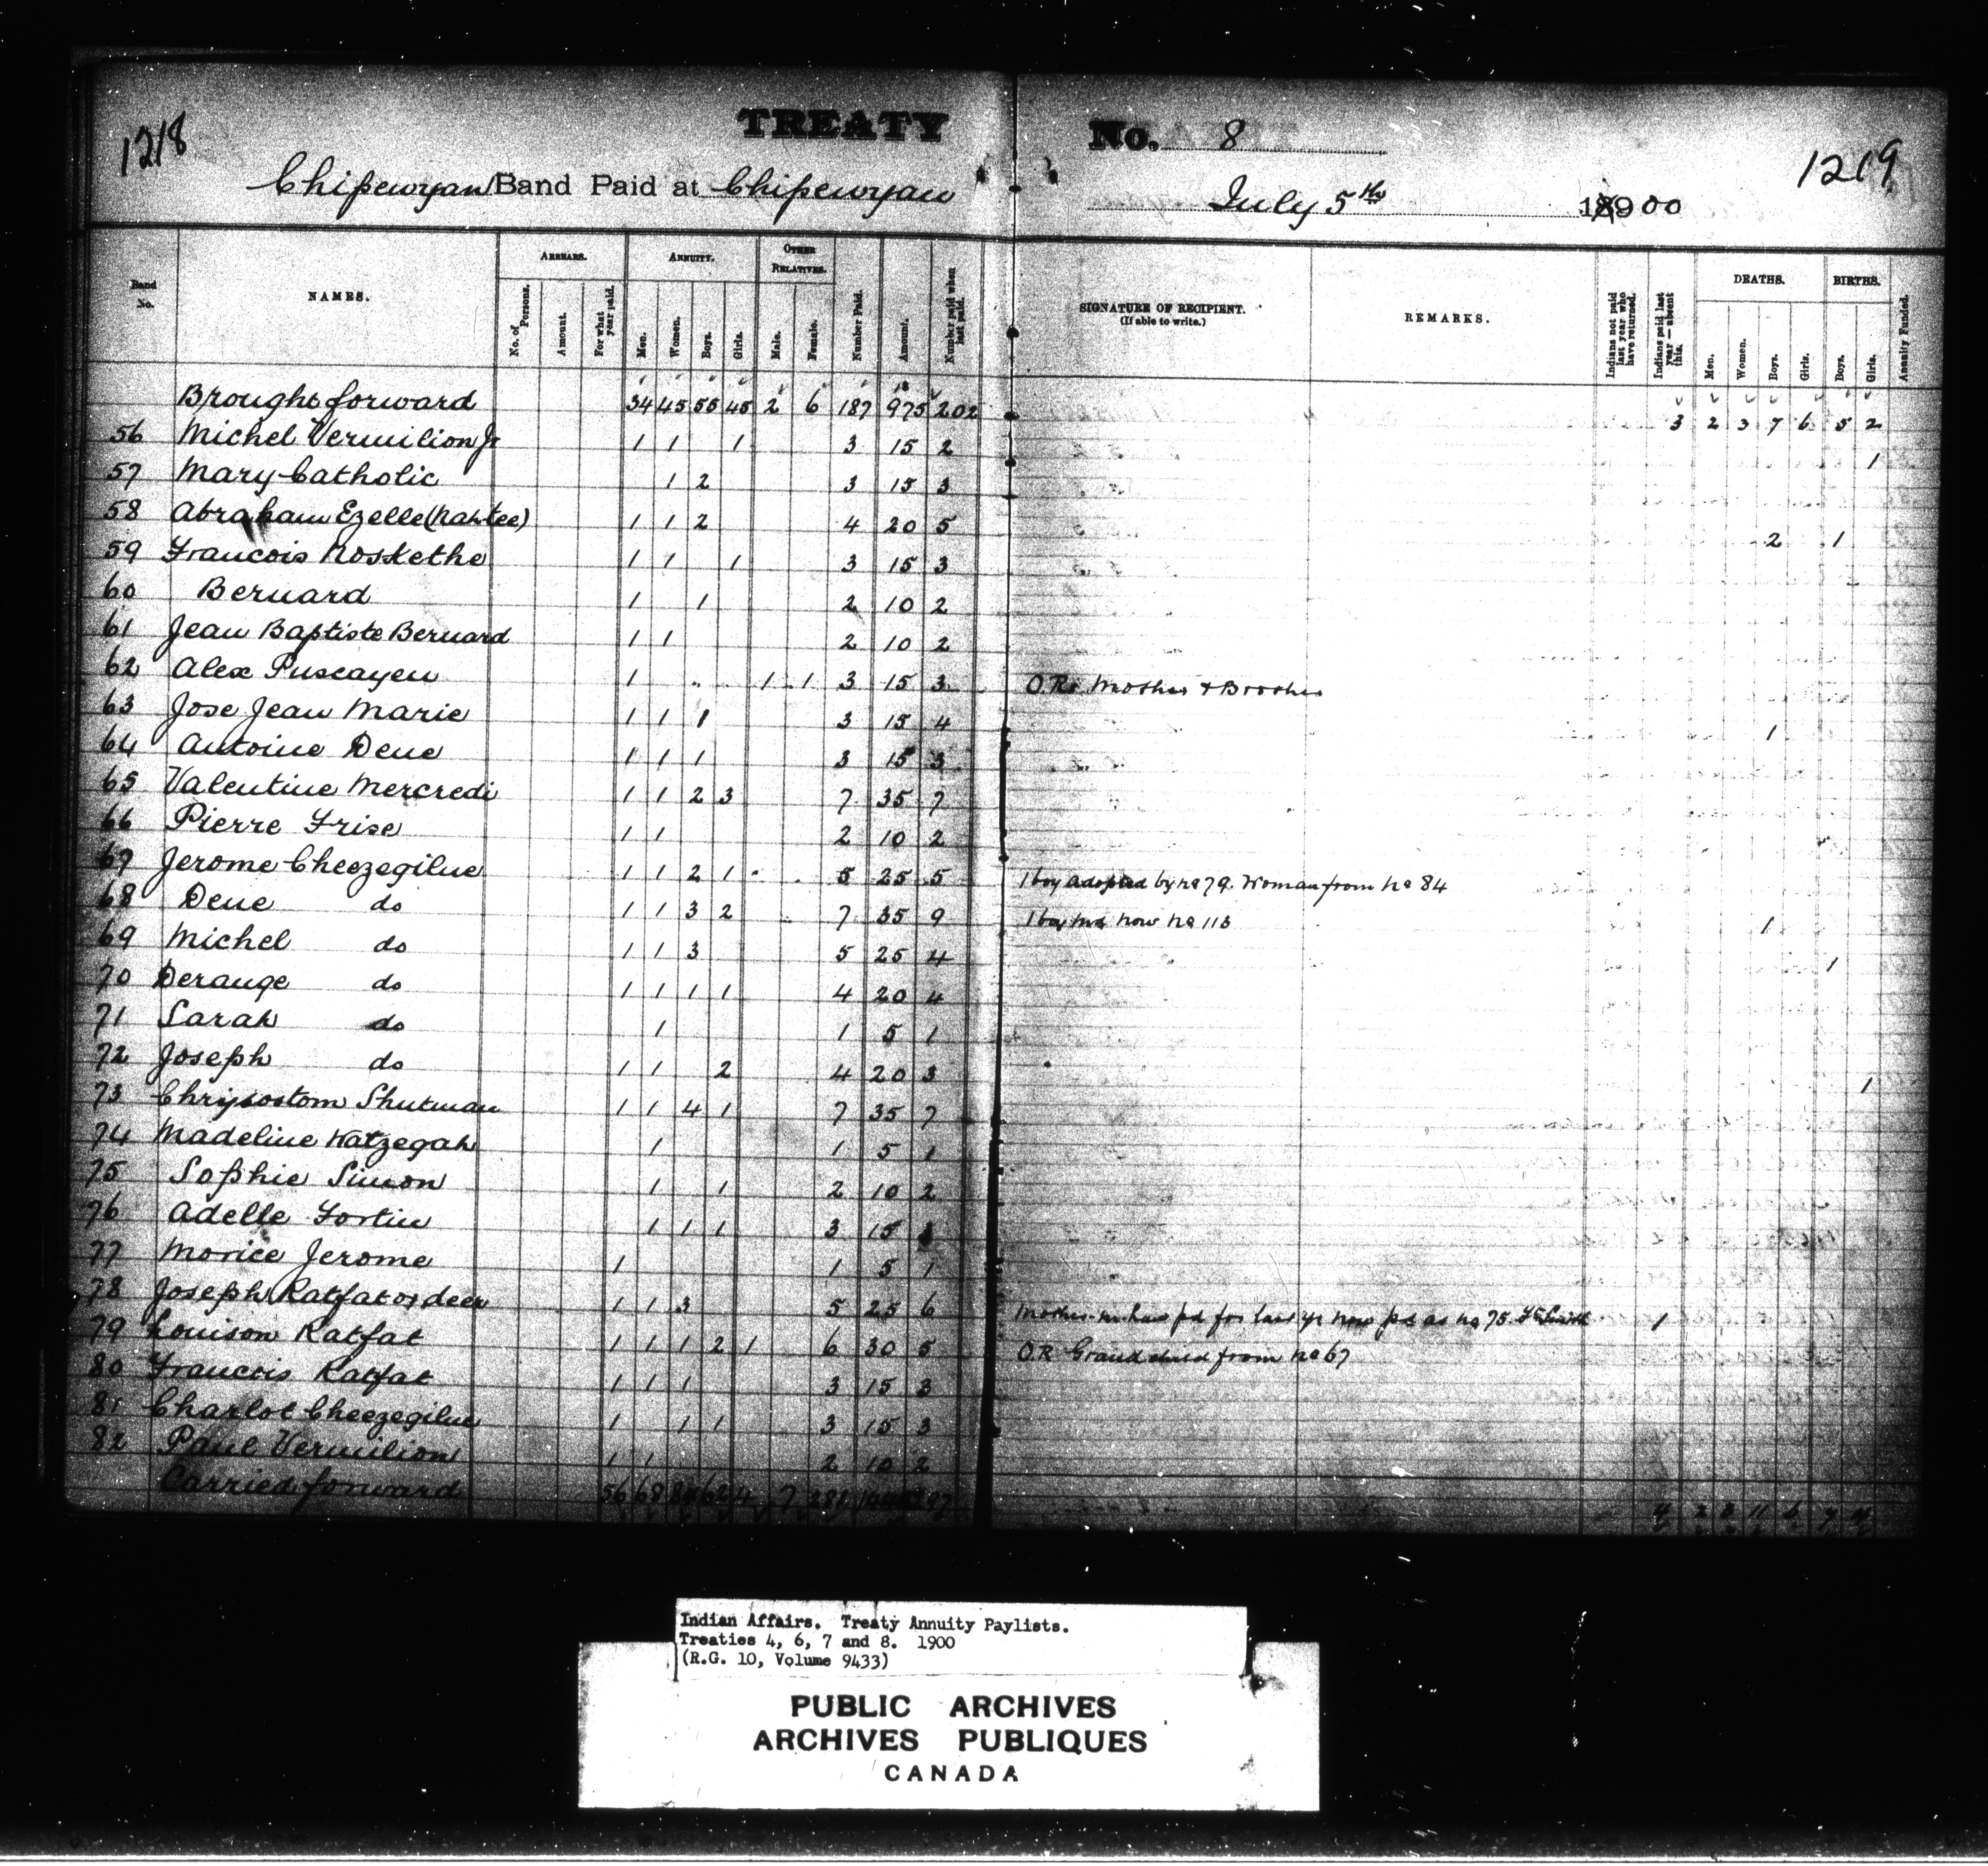 1218
TREATY
No. 8
1219
Chipewyan Band Paid at Chipewyan
July 5th 18900
Band No.
NAMES.
ARREARS.
No. of Persons.
Amount.
For what year paid.
ANNUITY.
Men.
Women.
Boys.
Girls.
OTHER RELATIVES.
Male.
Female.
Number Paid.
Amount.
Number paid when last paid.
SIGNATURE OF RECIPIENT.
(If able to write.)
REMARKS.
Indians not paid last year who have returned.
Indians paid last year — absent this.
DEATHS.
Men.
Women.
Boys.
Girls.
BIRTHS.
Boys.
Girls.
Annuity Funded.
Brought forward 34 45 55 45 2 6 187 975 202 3 2 3 7 6 5 2
56 Michel Vermilion Jr 1 1 1 3 15 2 1
57 Mary Catholic 1 2 3 15 3
58 Abraham Ezelle (Nahtee) 1 1 2 4 20 5 2 1
59 Francois Noskethe 1 1 1 3 15 3
60 Bernard 1 1 2 10 2
61 Jean Baptiste Bernard 1 1 2 10 2
62 Alex Puscayen 1 1 1 3 15 3 O.Rs Mother & Brother
63 Jose Jean Marie 1 1 1 3 15 4 1
64 Antoine Dene 1 1 1 3 15 3
65 Valentine Mercredi 1 1 2 3 7 35 7
66 Pierre Frise 1 1 2 10 2
67 Jerome Cheezegilue 1 1 2 1 5 25 5 1 boy adopted by No 79. Woman from No 84
68 Dene do 1 1 3 2 7 35 9 1 boy md now No 113 1
69 Michel do 1 1 3 5 25 4 1
70 Derange do 1 1 1 1 4 20 4
71 Sarah do 1 1 5 1
72 Joseph do 1 1 2 4 20 3 1
73 Chrysostom Shutman 1 1 4 1 7 35 7
74 Madeline Katzegah 1 1 5 1
75 Sophie Simon 1 1 2 10 2
76 Adelle Fortin 1 1 1 3 15
77 Morice Jerome 1 1 5 1
78 Joseph Ratfat or deer 1 1 3 5 25 6 Mother in law pd for last yr now pd as No 75 Ft Smith 1
79 Louison Ratfat 1 1 1 2 1 6 30 5 O.R Grand child from No 67
80 Francois Ratfat 1 1 1 3 15 3
81 Charlot Cheezegilue 1 1 1 3 15 3
82 Paul Vermilion 1 1 2 10 2
Carried forward 56 68 62 4 7 4 2 3 11 6 7 4
Indian Affairs. Treaty Annuity Paylists.
Treaties 4, 6, 7 and 8. 1900
(R.G. 10, Volume 9433)
PUBLIC ARCHIVES
ARCHIVES PUBLIQUES
CANADA